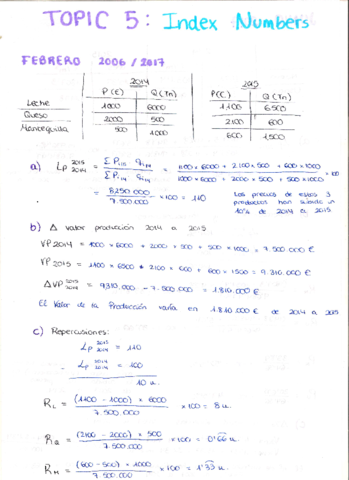 TOPIC 5: Index Numbers
FEBRERO 2006 / 2017
2014 2015
P (€) Q (Tn) P(€) Q (Tn)
Leche 1000 6000 1100 6500
Queso 2000 500 2100 600
Mantequilla 500 1000 600 1500
a) Lp 2015 2014 = Σ Pit qi14 / Σ Pi14 qi14 = 1100 x 6000 + 2100 x 500 + 600 x 1000 / 1000 x 6000 + 2000 x 500 + 500 x 1000 x 100
= 8250.000 / 7.500.000 x 100 = 110
Los precios de estos 3
productos han subido un
10% de 2014 a 2015
b) Δ valor producción 2014 a 2015
VP 2014 = 1000 x 6000 + 2000 x 500 + 500 x 1000 = 7.500.000 €
VP 2015 = 1100 x 6500 + 2100 x 600 + 600 x 1500 = 9.310.000 €
ΔVP 2015 2014 = 9310.000 - 7.500.000 = 1.810.000 €
El Valor de la Producción varía en 1.810.000 € de 2014 a 2015
c) Repercusiones:
Lp 2015 2014 = 110
Lp 2014 2014 = 100
10 u.
RL = (1100 - 1000) x 6000 / 7.500.000 x 100 = 8 u.
RQ = (2100 - 2000) x 500 / 7.500.000 x 100 = 0'66 u.
RM = (600 - 500) x 1000 / 7.500.000 x 100 = 1'33 u.